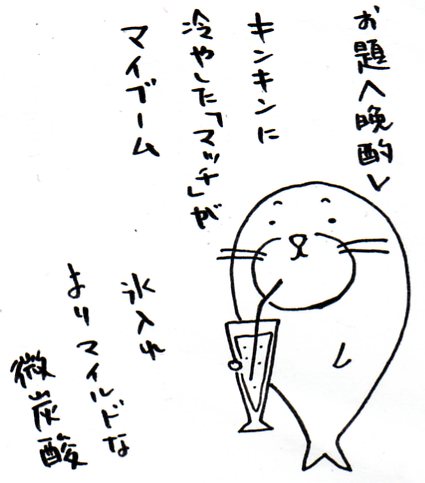 お題〈晩酌〉
キンキンに
冷やした「マッチ」が
マイブーム
氷入れ
よりマイルドな
微炭酸